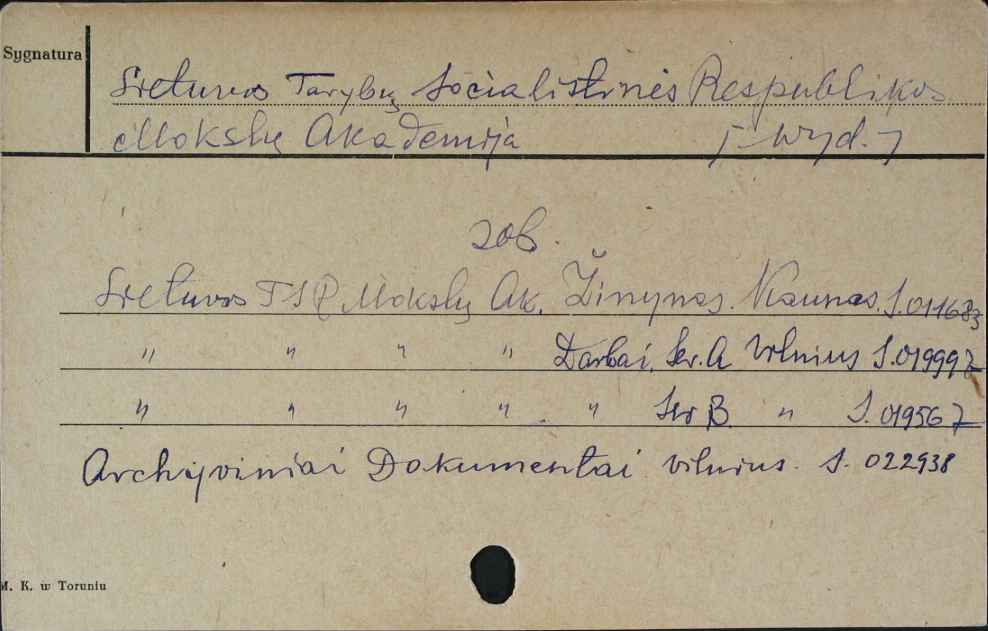 Sygnatura
Lietuvos Tarybų Socialistinės Respublikos
Mokslų Akademija [-wyd.]
zob.
Lietuvos TSR Mokslų Ak. Žinynas. Kaunas. S.011683
" " " " Darbai, Ser. A Vilnius S.019997
" " " " " Ser B. " S. 019567
Archyviniai Dokumentai Vilnius. S. 022938
M. K. w Toruniu